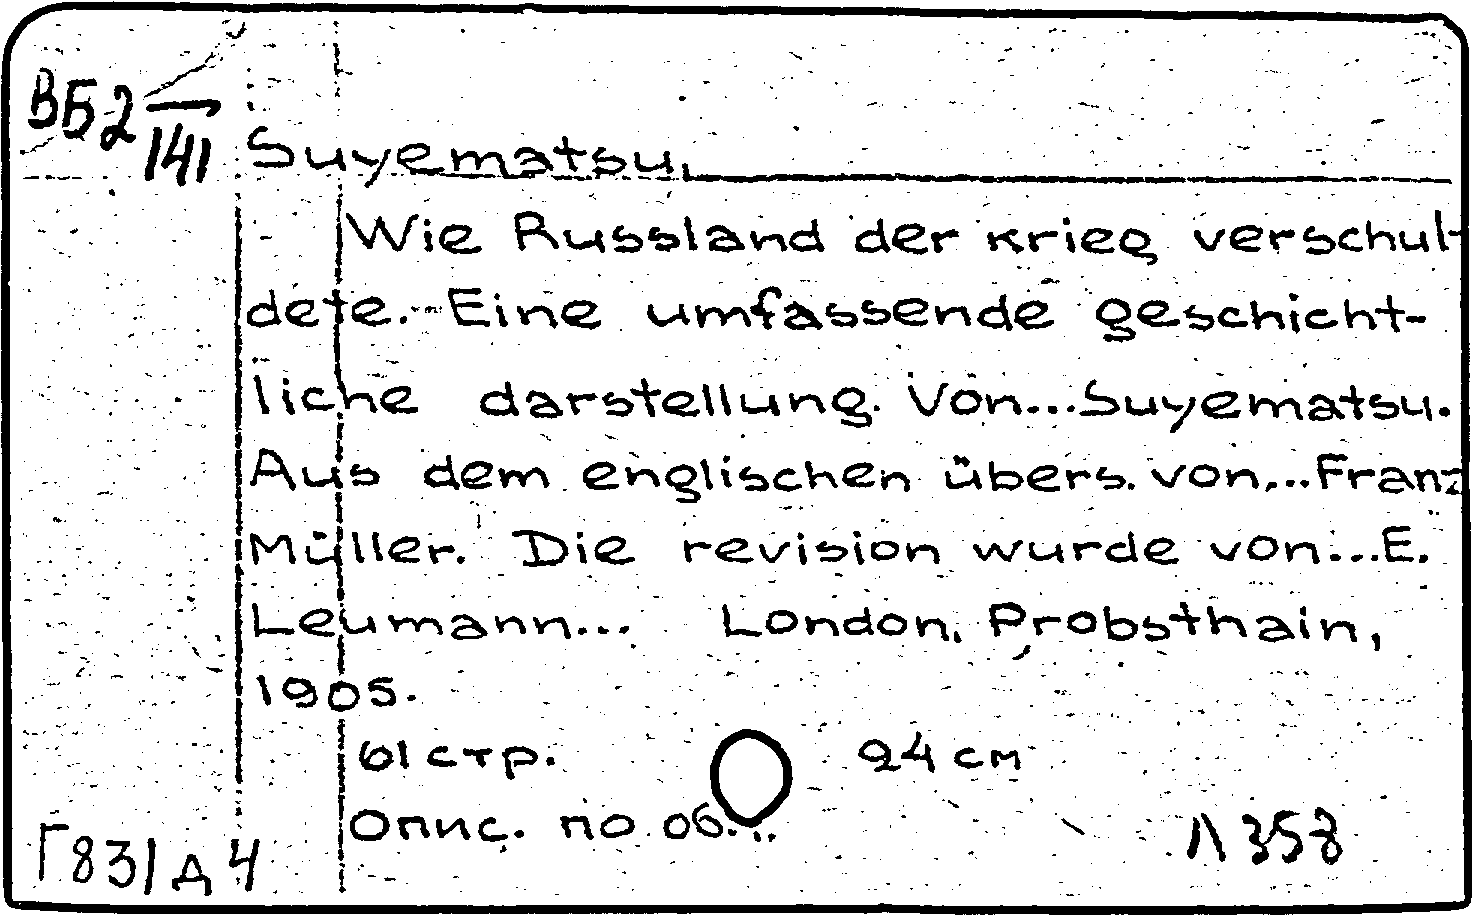 ВБ2 —
141
Suyematsu.
Wie Russland der krieg verschul-
dete.—Eine umfassende geschicht-
liche darstellung. Von...Suyematsu.
Aus dem englischen übers. von...Franz
Müller. Die revision wurde von...E.
Leumann... London, Probsthain,
1905.
61 стр. 24 см
Опис. по об...
Г831д4 Л358